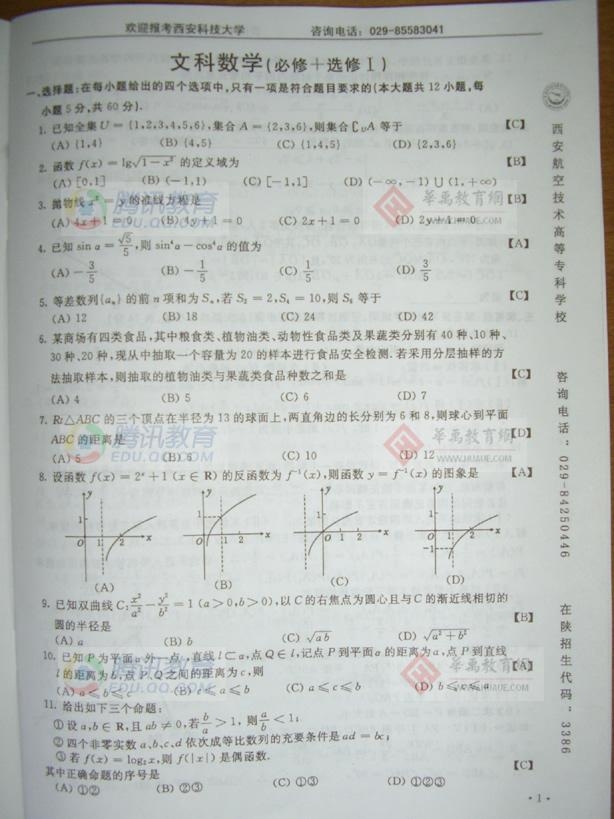 欢迎报考西安科技大学 咨询电话：029-85583041
文科数学(必修＋选修Ⅰ)
一、选择题:在每小题给出的四个选项中,只有一项是符合题目要求的(本大题共 12 小题,每
小题 5 分,共 60 分).
1. 已知全集 U = {1,2,3,4,5,6},集合 A = {2,3,6},则集合 ∁UA 等于 【C】
(A) {1,4} (B) {4,5} (C) {1,4,5} (D) {2,3,6}
2. 函数 f(x) = lg√(1-x²) 的定义域为 【B】
(A) [0,1] (B) (-1,1) (C) [-1,1] (D) (-∞,-1)∪(1,+∞)
3. 抛物线 x² = y 的准线方程是 【B】
(A) 4x+1=0 (B) 4y+1=0 (C) 2x+1=0 (D) 2y+1=0
4. 已知 sin α = √5/5,则 sin⁴α - cos⁴α 的值为 【A】
(A) -3/5 (B) -1/5 (C) 1/5 (D) 3/5
5. 等差数列{aₙ} 的前 n 项和为 Sₙ,若 S₂ = 2,S₄ = 10,则 S₆ 等于 【C】
(A) 12 (B) 18 (C) 24 (D) 42
6. 某商场有四类食品,其中粮食类、植物油类、动物性食品类及果蔬类分别有 40 种、10 种、
30 种、20 种,现从中抽取一个容量为 20 的样本进行食品安全检测.若采用分层抽样的方
法抽取样本,则抽取的植物油类与果蔬类食品种数之和是 【C】
(A) 4 (B) 5 (C) 6 (D) 7
7. Rt△ABC 的三个顶点在半径为 13 的球面上,两直角边的长分别为 6 和 8,则球心到平面
ABC 的距离是 【D】
(A) 5 (B) 6 (C) 10 (D) 12
8. 设函数 f(x) = 2ˣ+1 (x∈R) 的反函数为 f⁻¹(x),则函数 y = f⁻¹(x) 的图象是 【A】
y 1 O 1 2 x
y 1 O x
y 1 O 1 2 x
y O 1 2 x -1
(A) (B) (C) (D)
9. 已知双曲线 C: x²/a² - y²/b² = 1 (a>0,b>0),以 C 的右焦点为圆心且与 C 的渐近线相切的
圆的半径是 【B】
(A) a (B) b (C) √ab (D) √(a²+b²)
10. 已知 P 为平面 α 外一点,直线 l⊂α,点 Q∈l,记点 P 到平面 α 的距离为 a,点 P 到直线
l 的距离为 b,点 P、Q 之间的距离为 c,则 【A】
(A) a≤b≤c (B) c≤a≤b (C) a≤c≤b (D) b≤c≤a
11. 给出如下三个命题:
①设 a,b∈R,且 ab≠0,若 b/a > 1,则 a/b < 1;
②四个非零实数 a、b、c、d 依次成等比数列的充要条件是 ad = bc;
③若 f(x) = log₂x,则 f(|x|) 是偶函数.
其中正确命题的序号是 【C】
(A) ①② (B) ②③ (C) ①③ (D) ①②③
· 1 ·
西安航空技术高等专科学校
咨询电话：029-84250446
在陕招生代码：3386
腾讯教育
EDU.QQ.COM
华禹教育网
WWW.HUAUE.COM
腾讯教育
EDU.QQ.COM
华禹教育网
WWW.HUAUE.COM
腾讯教育
EDU.QQ.COM
华禹教育网
WWW.HUAUE.COM